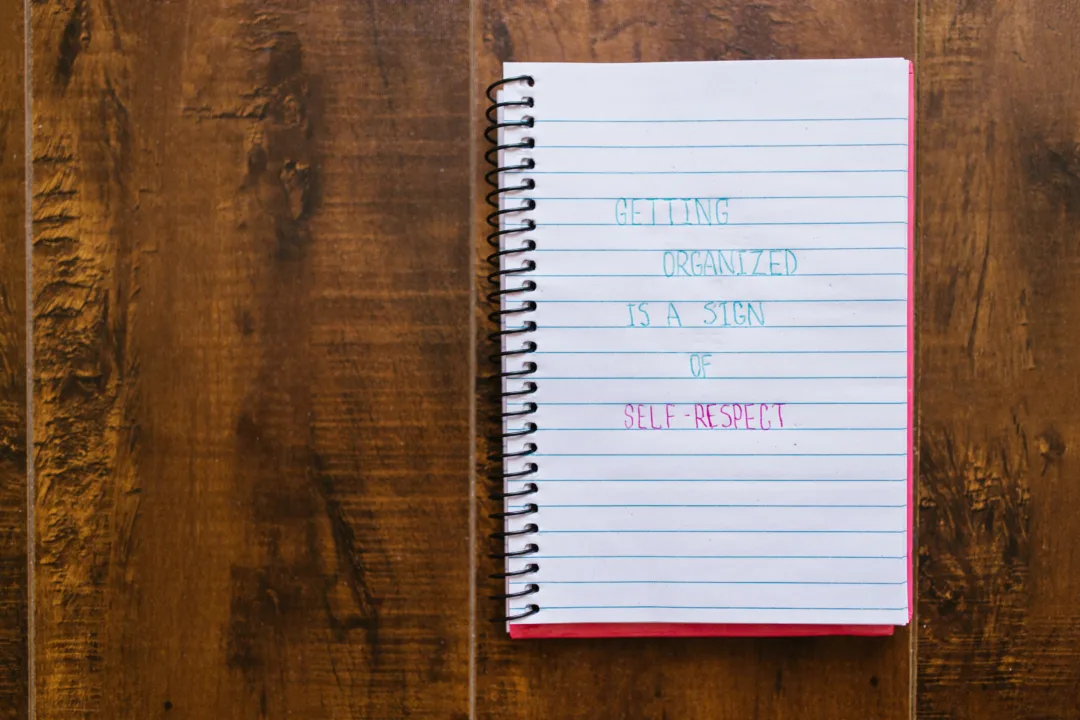 GETTING
ORGANIZED
IS A SIGN
OF
SELF-RESPECT